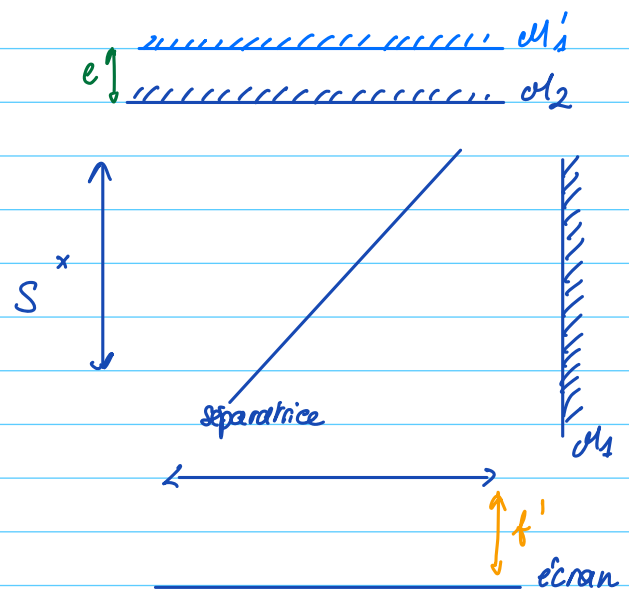 M'1
e
M2
S
séparatrice
M1
f'
écran